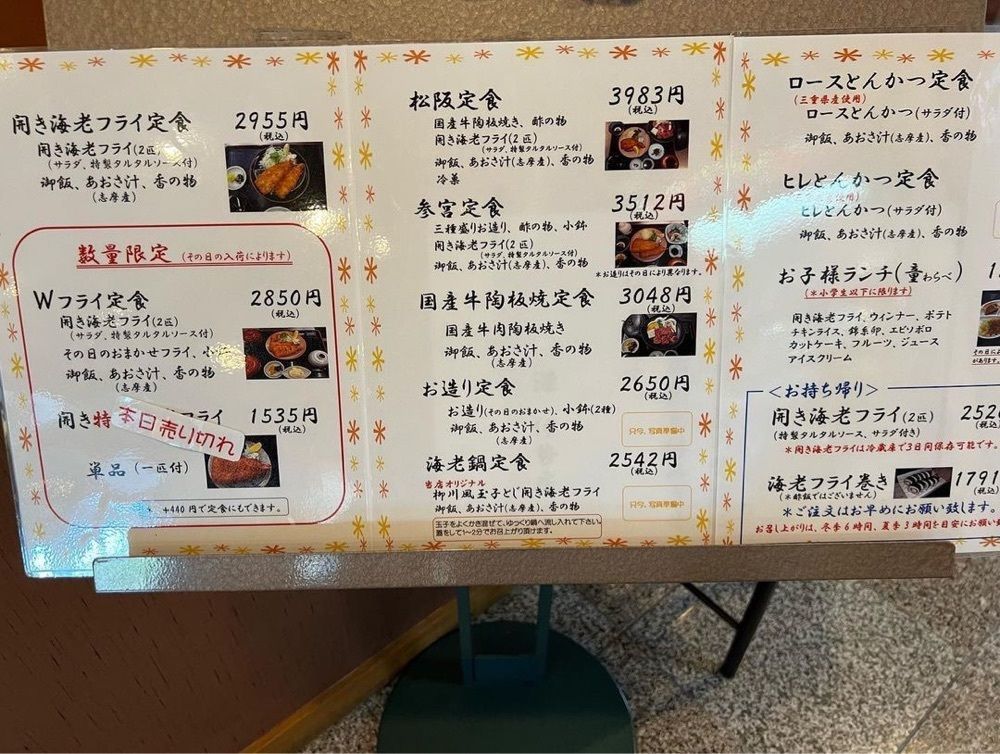 開き海老フライ定食 2955円
(税込)
開き海老フライ(2匹)
(サラダ、特製タルタルソース付)
御飯、あおさ汁、香の物
(志摩産)
数量限定 (その日の入荷によります)
Wフライ定食 2850円
(税込)
開き海老フライ(2匹)
(サラダ、特製タルタルソース付)
その日のおまかせフライ、小
御飯、あおさ汁、香の物
(志摩産)
開き特 フライ 1535円
(税込)
本日売り切れ
単品 (一匹付)
+440円で定食にもできます。
松阪定食 3983円
(税込)
国産牛陶板焼き、酢の物
開き海老フライ(2匹)
(サラダ、特製タルタルソース付)
御飯、あおさ汁(志摩産)、香の物
冷菓
参宮定食 3512円
(税込)
三種盛りお造り、酢の物、小鉢
開き海老フライ(2匹)
(サラダ、特製タルタルソース付)
御飯、あおさ汁(志摩産)、香の物
*お造りはその日により異なります。
国産牛陶板焼定食 3048円
(税込)
国産牛肉陶板焼き
御飯、あおさ汁、香の物
(志摩産)
お造り定食 2650円
(税込)
お造り(その日のおまかせ)、小鉢(2種)
御飯、あおさ汁、香の物
(志摩産)
只今、写真準備中
海老鍋定食 2542円
(税込)
当店オリジナル
柳川風玉子とじ開き海老フライ
御飯、あおさ汁(志摩産)、香の物
只今、写真準備中
玉子をよくかき混ぜて、ゆっくり鍋へ流し入れて下さい
蓋をして1〜2分でお召上がり頂けます。
ロースとんかつ定食
(三重県産使用)
ロースとんかつ(サラダ付)
御飯、あおさ汁(志摩産)、香の物
ヒレとんかつ定食
使用)
ヒレとんかつ(サラダ付)
御飯、あおさ汁(志摩産)、香の物
お子様ランチ(童わらべ) 1
(*小学生以下に限ります)
開き海老フライ、ウィンナー、ポテト
チキンライス、錦糸卵、エビソボロ
カットケーキ、フルーツ、ジュース
アイスクリーム
<お持ち帰り>
開き海老フライ(2匹) 252
(特製タルタルソース、サラダ付き) (税込)
*開き海老フライは冷蔵庫で3日間保存可能です。
海老フライ巻き 1791
(*酢飯ではございません) (税込)
*ご注文はお早めにお願い致します。
お召し上がりは、冬季6時間、夏季3時間を目安にお願い